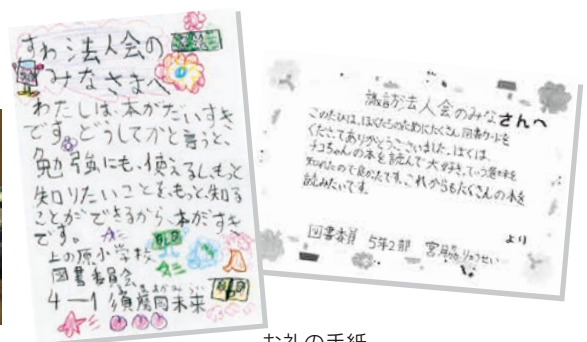 すわ法人会の
みなさまへ
わたしは、本がだいすき
です。どうしてかと言うと、
勉強にも、使えるし、もっと
知りたいことを、もっと、知る
ことができるから、本がすき
です。
上の原小学校
図書委員会
4-1 須賀間未来
諏訪法人会のみなさんへ
このたびは、ぼくたちのためにたくさん図書カードを
くださってありがとうございました。ぼくは、
チコちゃんの本を読んで大好き、ていう意味を
知れたので良かったです。これからもたくさんの本を
読みたいです。
より
図書委員 5年2部 宮 りょうせい
お礼の手紙